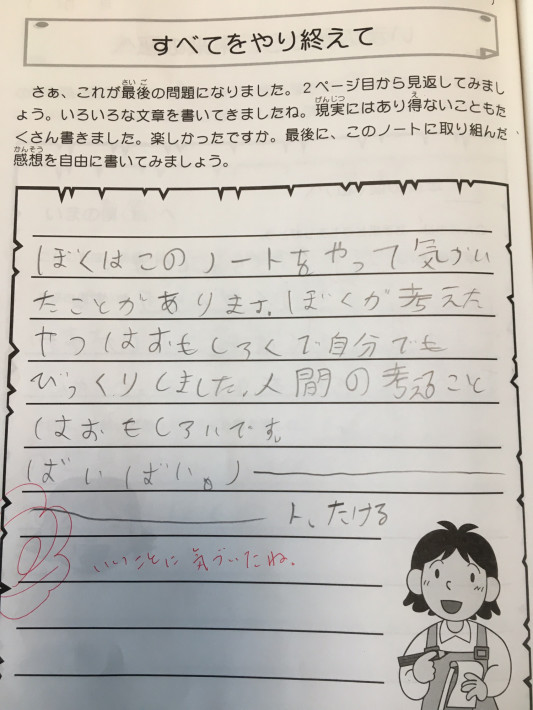 すべてをやり終えて
さぁ、これが最後の問題になりました。2ページ目から見返してみまし
ょう。いろいろな文章を書いてきましたね。現実にはあり得ないこともた
くさん書きました。楽しかったですか。最後に、このノートに取り組んだ
感想を自由に書いてみましょう。
ぼくはこのノートをやって気がい
たことがあります。ぼくが考えた
やつはおもしろくて自分でも
びっくりしました。人間の考えること
はおもしろいです。
ばいばい。ノ
ト、たける
いいことに気づいたね。